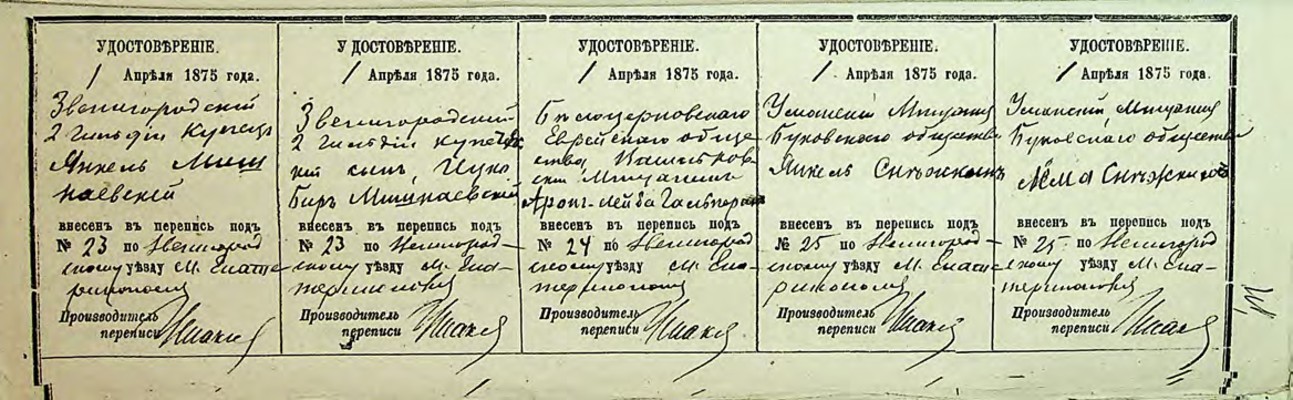 УДОСТОВѢРЕНІЕ.
1 Апрѣля 1875 года.
Звенигородскій
2 гильдіи купецъ
Янкель Миш
наевскій
внесенъ въ перепись подъ
№ 23 по Звенигород
скому уѣзду М. Екате
ринополя
Производитель
переписи
УДОСТОВѢРЕНІЕ.
1 Апрѣля 1875 года.
Звенигородскій
2 гильдіи купече
скій сынъ, Ицко
Беръ Мишнаевскій
внесенъ въ перепись подъ
№ 23 по Звенигород-
скому уѣзду М. Ека-
теринополя
Производитель
переписи
УДОСТОВѢРЕНІЕ.
1 Апрѣля 1875 года.
Бѣлоцерковскаго
Еврейскаго обще
ства,
скій Мѣщанинъ
Аронъ-Лейба Гальперинъ
внесенъ въ перепись подъ
№ 24 по Звенигород
скому уѣзду М. Ека-
теринополя
Производитель
переписи
УДОСТОВѢРЕНІЕ.
1 Апрѣля 1875 года.
Уманскій Мѣщанинъ
Буковскаго общества
Янкель Снѣжкинъ
внесенъ въ перепись подъ
№ 25 по Звенигород-
скому уѣзду М. Екате
ринополя
Производитель
переписи
УДОСТОВѢРЕНІЕ.
1 Апрѣля 1875 года.
Уманскій, Мѣщанинъ
Буковскаго общества
внесенъ въ перепись подъ
№ 25 по Звенигород
скому уѣзду М. Ека-
теринополя
Производитель
переписи